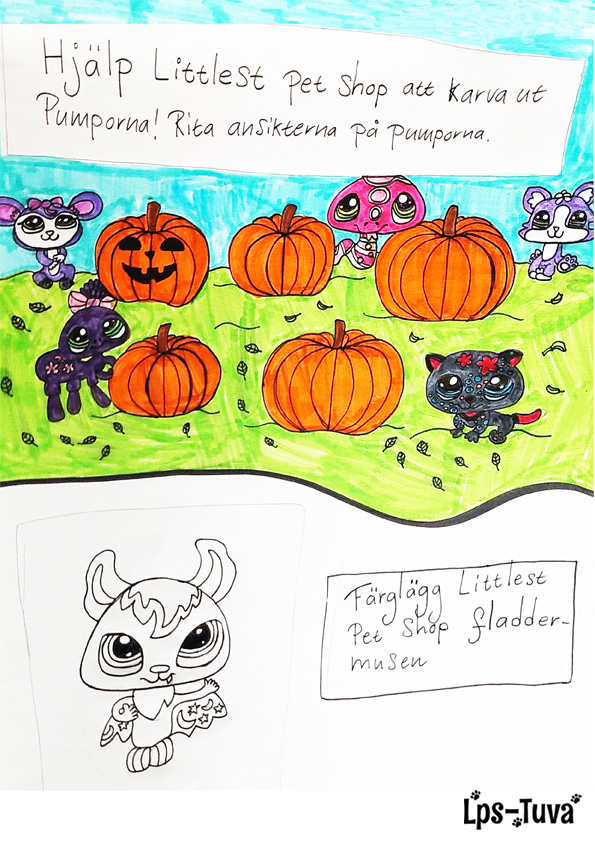 Hjälp Littlest Pet Shop att karva ut
Pumporna! Rita ansikterna på pumporna.
Färglägg Littlest
Pet Shop fladder-
musen
Lps-Tuva